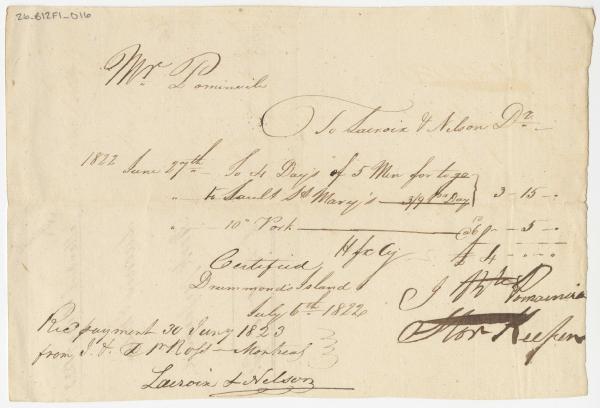 26-B12F1-016
Mr. Pominvile
To Lacroix & Nelson Dr.
1822 June 27th - To 4 Days of 5 Men for to go
" to Sault St Mary's 3/9 pr Day 3 - 15 - "
" 10 lb Pork @ 6 - " 5 - "
Hfx Cy £ 4 - " - "
Certified
Drummond's Island
July 6th 1822
J Bte Pomainvile
Stor Keeper
Recd payment 30 Juny 1823
from J. & P. Ross - Montreal
Lacroix & Nelson